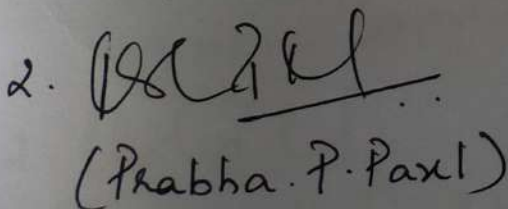 2.
(Prabha. P. Paxl)